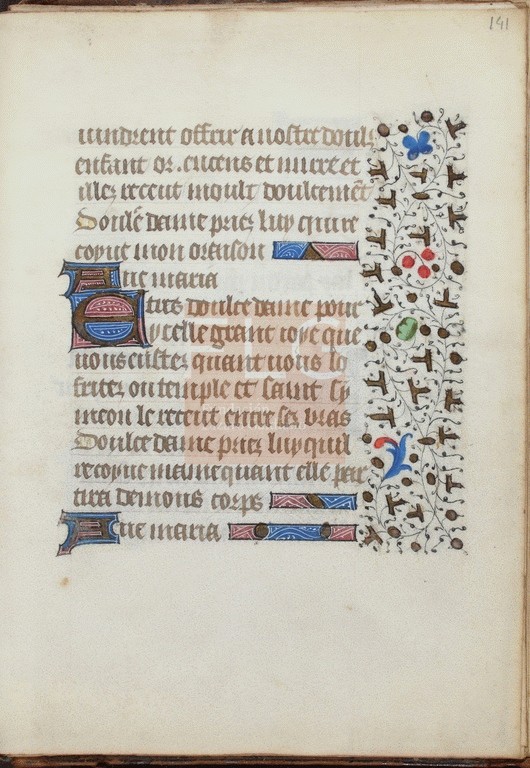 141
vindrent offrir a nostre doulz
enfant or. encens et mirre et
il les receut moult doulcemēt
Doulce dame priez luy quil re
coyue mon oreison
Aue maria
E tres doulce dame pour
ycelle grant ioye que
vous eustes quant vous lo
frites ou temple et saint sy
meon le receut entre ses bras
Doulce dame priez luy quil
recoyue mame quant elle par
tira de mons corps
Aue maria